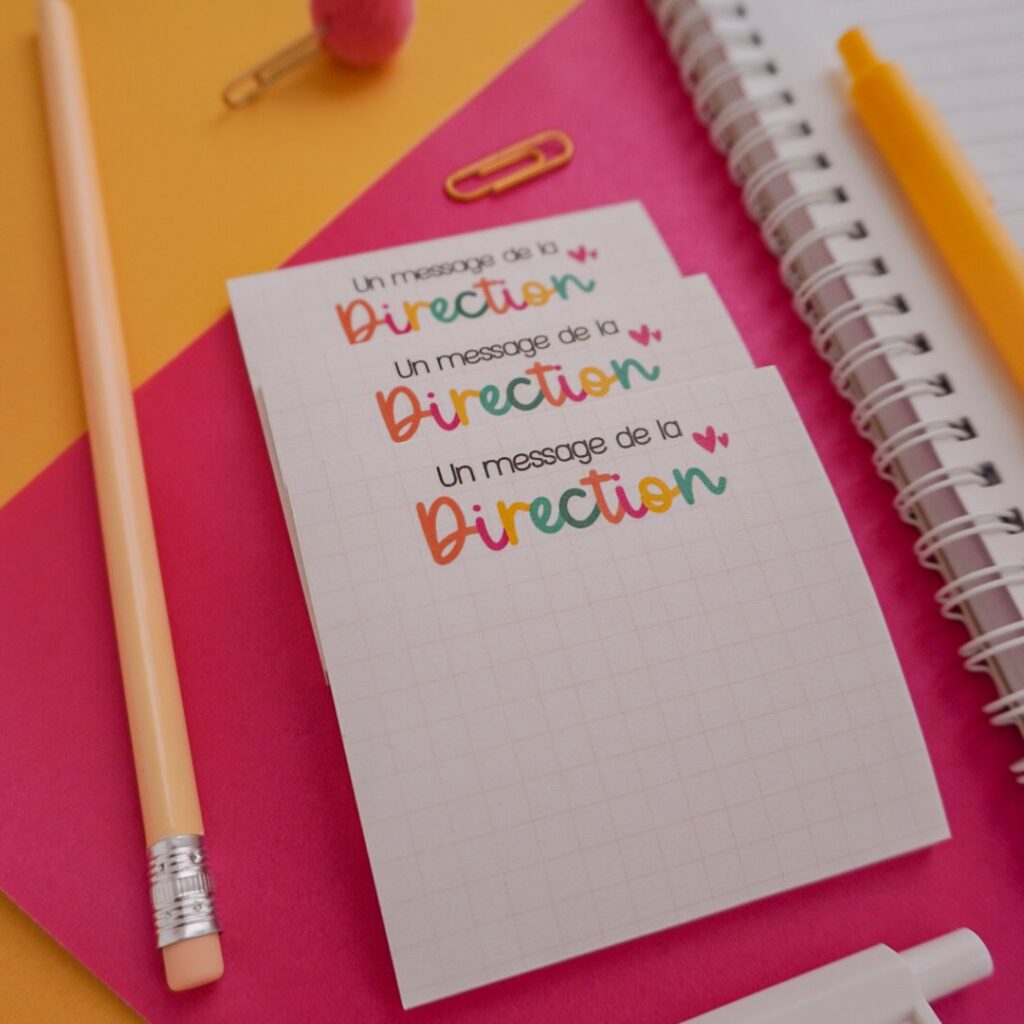 Un message de la
Direction
Un message de la
Direction
Un message de la
Direction